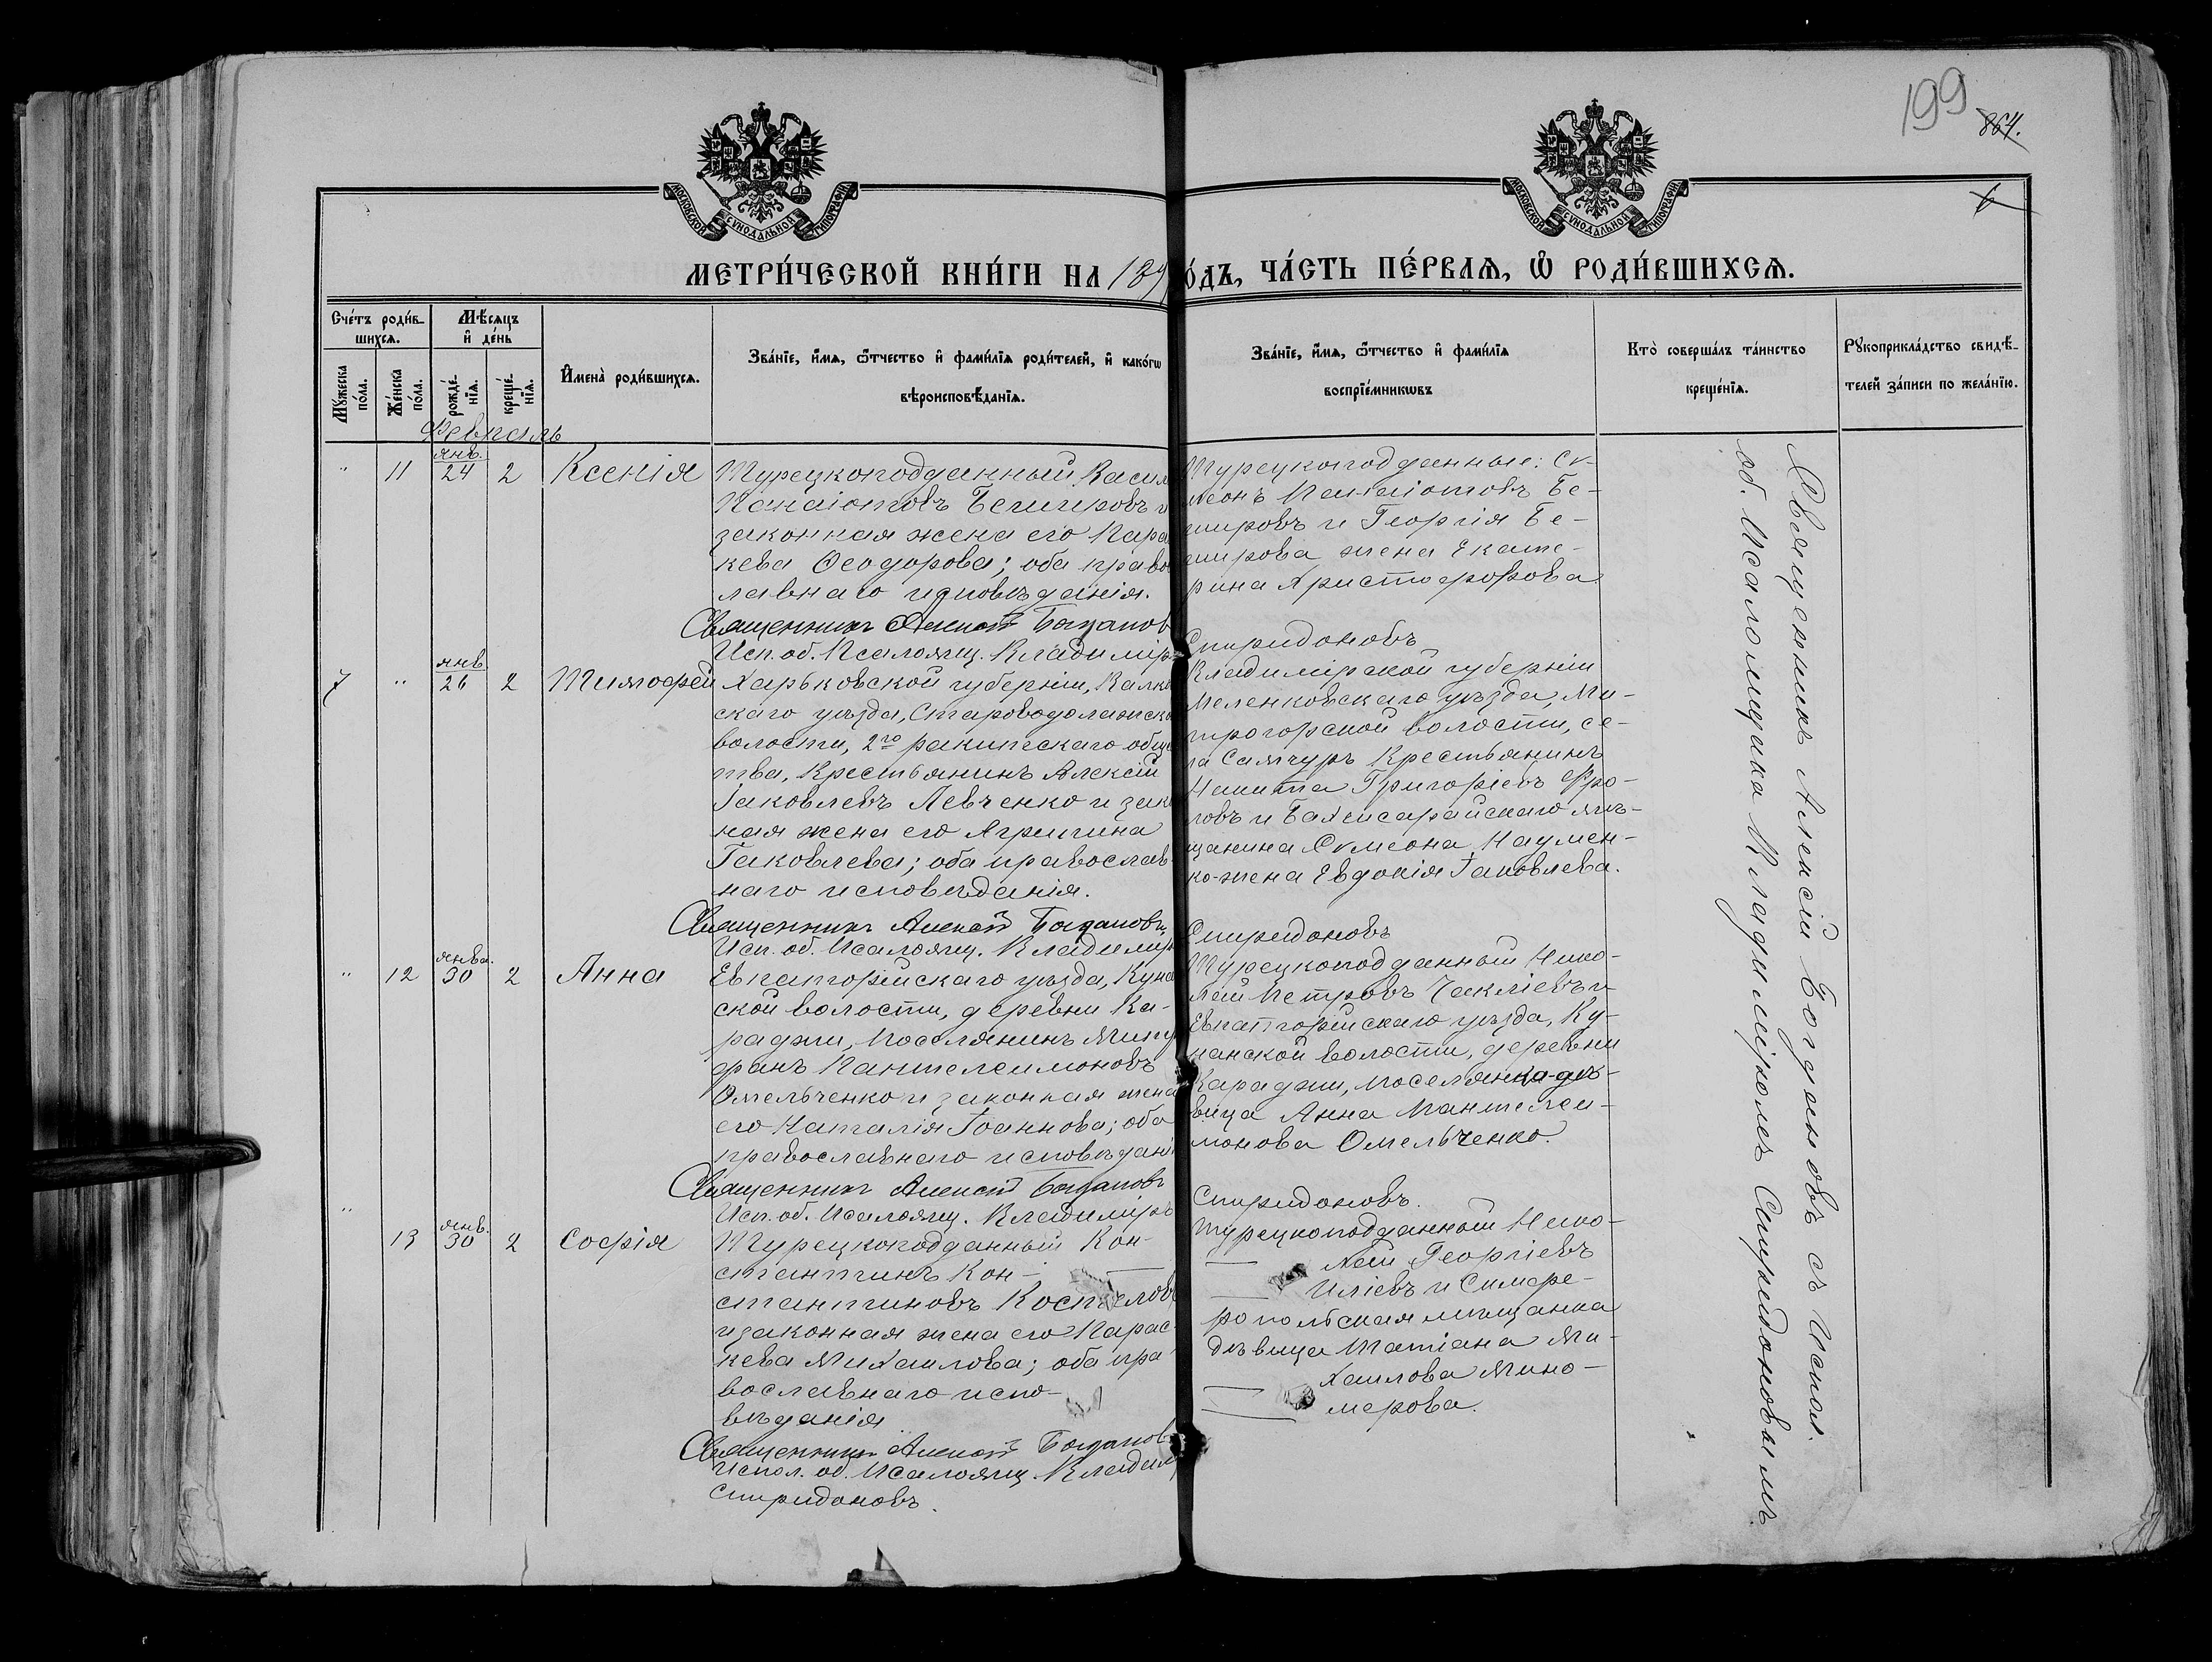 199
864.
6
МОСКОВСКОЙ СѴНОДАЛЬНОЙ ТИПОГРАФІИ
МОСКОВСКОЙ СѴНОДАЛЬНОЙ ТИПОГРАФІИ
МЕТРИ́ЧЕСКОЙ КНИ́ГИ НА 189 О́ДЪ, ЧА́СТЬ ПЕ́РВАЯ, Ѽ РОДИ́ВШИХСЯ.
Сче́тъ роди́в-
шихся.
Мꙋ́жеска по́ла.
Же́нска по́ла.
Мѣ́сяцъ
и҆ де́нь
рожде́-
нїя.
креще́-
нїя.
И҆мена̀ роди́вшихся.
Зва́нїе, и҆́мя, ѻ҆́тчество и҆ фами́лїя роди́телей, и҆ како́гѡ
вѣроисповѣ́данїя.
Зва́нїе, и҆́мя, ѻ҆́тчество и҆ фами́лїя
воспрїе́мникѡвъ
Кто̀ соверша́лъ та́инство
креще́нїя.
Рꙋкоприкла́дство свидѣ́-
телей за́писи по жела́нїю.
Февраль
" 11 янв. 24 2 Ксенія
Турецкоподданный Васил
Панаіотовъ Бешировъ и
законная жена его Пара
кева Ѳеодорова; оба право
лавнаго исповѣданія.
Священникъ Алексій Богданов
Исп. об. Псаломщ. Владимір
Турецкоподданные: Сѵ-
меонъ Панаіотовъ Бе-
шировъ и Георгія Бе-
широва жена Екате-
рина Христофорова
Спиридоновъ
7 " янв 26 2 Тимоѳей
Харьковской губерніи, Валко
скаго уѣзда, Староводолажско
волости, 2го ракитскаго обще
тва, Крестьянинъ Алексій
Іаковлевъ Левченко и зако
ная жена его Агрипина
Іаковлева; оба православ-
наго исповѣданія.
Священникъ Алексій Богдановъ
Исп. об. Псаломщ. Владимір
Владимірской губерніи
Меленковскаго уѣзда, Ди-
трогорской волости, се-
ла Самчуръ Крестьянинъ
Никита Григоріевъ Фро-
ловъ и Бахчисарайскаго мѣ-
щанина Сѵмеона Наумен-
ко-жена Евдокія Іаковлева.
Спиридоновъ
" 12 янва. 30 2 Анна
Евпаторійскаго уѣзда, Куна
ской волости, деревни Ка-
раджи, поселянинъ Митр
фанъ Пантелеимоновъ
Омельченко и законная жена
его Наталія Іоаннова; оба
православнаго исповѣдані
Священникъ Алексій Богдановъ
Исп. об. Псаломщ. Владиміръ
Турецкоподданный Нико-
лай Петровъ Чакліевъ и
Евпаторійскаго уѣзда, Ку-
нанской волости, деревни
Караджи, поселянка-дѣ-
вица Анна Пантелеи-
монова Омельченко.
Спиридоновъ.
" 13 янв. 30 2 Софія
Турецкоподданный Кон-
стантинъ Кон-
стантиновъ
и законная жена его Парас-
кева Михаилова; оба пра-
вославнаго испо-
вѣданія
Священникъ Алексій Богданов
Испол. об. Псаломщ. Владим
Спиридоновъ.
Турецкоподданный Нико-
лай Георгіевъ
Иліевъ и Симфе-
ропольская мѣщанка
дѣвица Татіана Ми-
хаилова Мино-
мерова.
Священникъ Алексій Богдановъ съ Испол.
об. Псаломщика Владиміромъ Спиридоновымъ